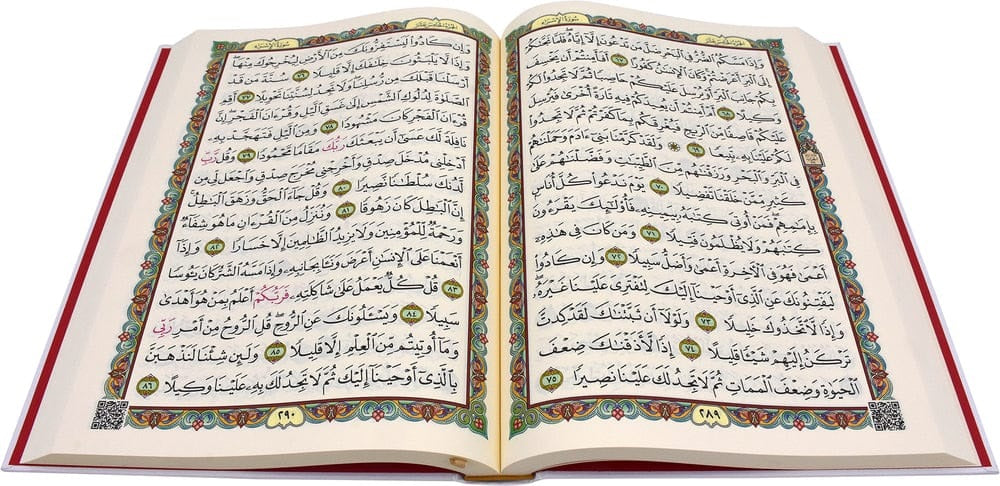 الجزء الخامس عشر
سورة الإسراء
وَإِذَا مَسَّكُمُ ٱلضُّرُّ فِى ٱلْبَحْرِ ضَلَّ مَن تَدْعُونَ إِلَّآ إِيَّاهُ فَلَمَّا نَجَّىٰكُمْ
إِلَى ٱلْبَرِّ أَعْرَضْتُمْ وَكَانَ ٱلْإِنسَـٰنُ كَفُورًا ٦٧ أَفَأَمِنتُمْ أَن يَخْسِفَ
بِكُمْ جَانِبَ ٱلْبَرِّ أَوْ يُرْسِلَ عَلَيْكُمْ حَاصِبًا ثُمَّ لَا تَجِدُوا۟ لَكُمْ
وَكِيلًا ٦٨ أَمْ أَمِنتُمْ أَن يُعِيدَكُمْ فِيهِ تَارَةً أُخْرَىٰ فَيُرْسِلَ
عَلَيْكُمْ قَاصِفًا مِّنَ ٱلرِّيحِ فَيُغْرِقَكُم بِمَا كَفَرْتُمْ ثُمَّ لَا تَجِدُوا۟
لَكُمْ عَلَيْنَا بِهِۦ تَبِيعًا ٦٩ ۞ وَلَقَدْ كَرَّمْنَا بَنِىٓ ءَادَمَ وَحَمَلْنَـٰهُمْ
فِى ٱلْبَرِّ وَٱلْبَحْرِ وَرَزَقْنَـٰهُم مِّنَ ٱلطَّيِّبَـٰتِ وَفَضَّلْنَـٰهُمْ عَلَىٰ
كَثِيرٍ مِّمَّنْ خَلَقْنَا تَفْضِيلًا ٧٠ يَوْمَ نَدْعُوا۟ كُلَّ أُنَاسٍۭ
بِإِمَـٰمِهِمْ فَمَنْ أُوتِىَ كِتَـٰبَهُۥ بِيَمِينِهِۦ فَأُو۟لَـٰٓئِكَ يَقْرَءُونَ
كِتَـٰبَهُمْ وَلَا يُظْلَمُونَ فَتِيلًا ٧١ وَمَن كَانَ فِى هَـٰذِهِۦٓ
أَعْمَىٰ فَهُوَ فِى ٱلْـَٔاخِرَةِ أَعْمَىٰ وَأَضَلُّ سَبِيلًا ٧٢ وَإِن كَادُوا۟
لَيَفْتِنُونَكَ عَنِ ٱلَّذِىٓ أَوْحَيْنَآ إِلَيْكَ لِتَفْتَرِىَ عَلَيْنَا غَيْرَهُۥ
وَإِذًا لَّٱتَّخَذُوكَ خَلِيلًا ٧٣ وَلَوْلَآ أَن ثَبَّتْنَـٰكَ لَقَدْ كِدتَّ
تَرْكَنُ إِلَيْهِمْ شَيْـًٔا قَلِيلًا ٧٤ إِذًا لَّأَذَقْنَـٰكَ ضِعْفَ
ٱلْحَيَوٰةِ وَضِعْفَ ٱلْمَمَاتِ ثُمَّ لَا تَجِدُ لَكَ عَلَيْنَا نَصِيرًا ٧٥
٢٨٩
الجزء الخامس عشر
سورة الإسراء
وَإِن كَادُوا۟ لَيَسْتَفِزُّونَكَ مِنَ ٱلْأَرْضِ لِيُخْرِجُوكَ مِنْهَا
وَإِذًا لَّا يَلْبَثُونَ خِلَـٰفَكَ إِلَّا قَلِيلًا ٧٦ سُنَّةَ مَن قَدْ
أَرْسَلْنَا قَبْلَكَ مِن رُّسُلِنَا وَلَا تَجِدُ لِسُنَّتِنَا تَحْوِيلًا ٧٧ أَقِمِ
ٱلصَّلَوٰةَ لِدُلُوكِ ٱلشَّمْسِ إِلَىٰ غَسَقِ ٱلَّيْلِ وَقُرْءَانَ ٱلْفَجْرِ إِنَّ
قُرْءَانَ ٱلْفَجْرِ كَانَ مَشْهُودًا ٧٨ وَمِنَ ٱلَّيْلِ فَتَهَجَّدْ بِهِۦ
نَافِلَةً لَّكَ عَسَىٰٓ أَن يَبْعَثَكَ رَبُّكَ مَقَامًا مَّحْمُودًا ٧٩ وَقُل رَّبِّ
أَدْخِلْنِى مُدْخَلَ صِدْقٍ وَأَخْرِجْنِى مُخْرَجَ صِدْقٍ وَٱجْعَل لِّى مِن
لَّدُنكَ سُلْطَـٰنًا نَّصِيرًا ٨٠ وَقُلْ جَآءَ ٱلْحَقُّ وَزَهَقَ ٱلْبَـٰطِلُ
إِنَّ ٱلْبَـٰطِلَ كَانَ زَهُوقًا ٨١ وَنُنَزِّلُ مِنَ ٱلْقُرْءَانِ مَا هُوَ شِفَآءٌ
وَرَحْمَةٌ لِّلْمُؤْمِنِينَ وَلَا يَزِيدُ ٱلظَّـٰلِمِينَ إِلَّا خَسَارًا ٨٢ وَإِذَآ
أَنْعَمْنَا عَلَى ٱلْإِنسَـٰنِ أَعْرَضَ وَنَـَٔا بِجَانِبِهِۦ وَإِذَا مَسَّهُ ٱلشَّرُّ كَانَ يَـُٔوسًا
٨٣ قُلْ كُلٌّ يَعْمَلُ عَلَىٰ شَاكِلَتِهِۦ فَرَبُّكُمْ أَعْلَمُ بِمَنْ هُوَ أَهْدَىٰ
سَبِيلًا ٨٤ وَيَسْـَٔلُونَكَ عَنِ ٱلرُّوحِ قُلِ ٱلرُّوحُ مِنْ أَمْرِ رَبِّى
وَمَآ أُوتِيتُم مِّنَ ٱلْعِلْمِ إِلَّا قَلِيلًا ٨٥ وَلَئِن شِئْنَا لَنَذْهَبَنَّ
بِٱلَّذِىٓ أَوْحَيْنَآ إِلَيْكَ ثُمَّ لَا تَجِدُ لَكَ بِهِۦ عَلَيْنَا وَكِيلًا ٨٦
٢٩٠